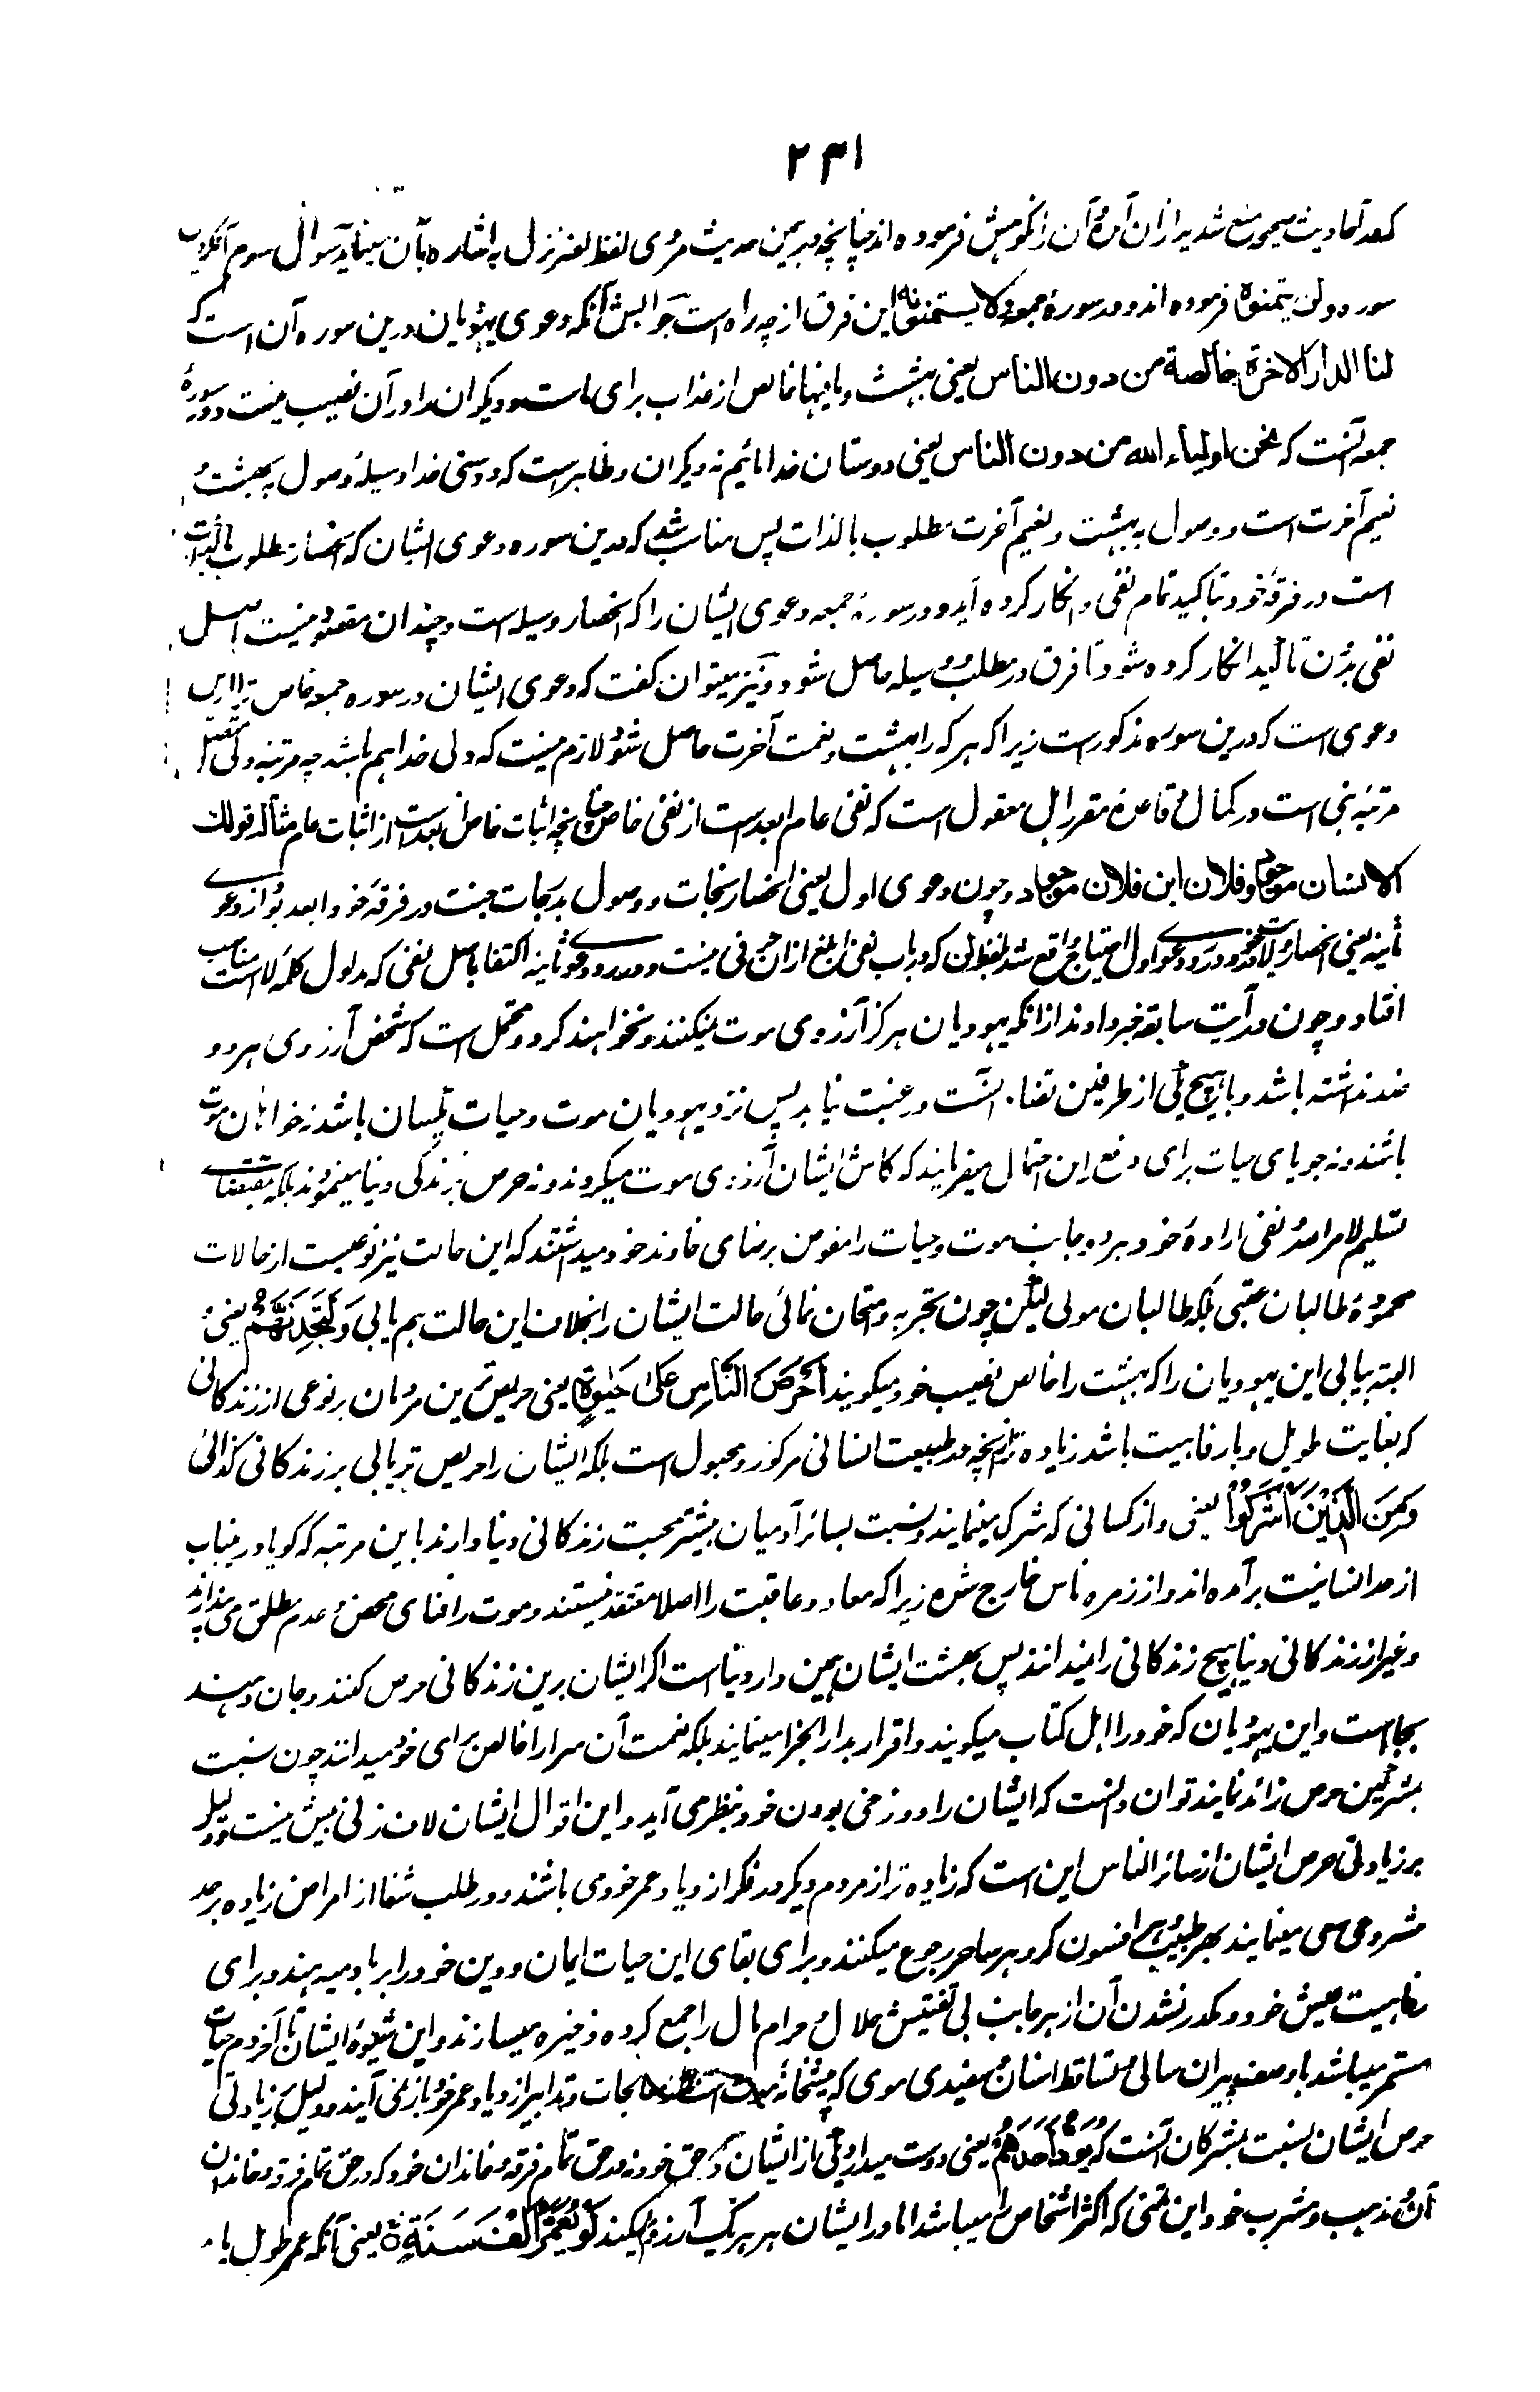 ۲۳۱
که در احادیث صحیح منع شدید ازان آمده آن را نکوهش فرموده‌اند چنانچه در همین حدیث مروی لفظ لضر نزل به اشاره بآن مینماید سوال سوم آنکه درین
سوره ولن یتمنوه فرموده‌اند و در سورۀ جمعه ولا یتمنونه این فرق از چه راه است جوابش آنکه دعوی یهودیان درین سوره آن است که
لنا الدار الاخرة خالصة من دون الناس یعنی بهشت و مافیها خالص از عذاب برای ماست و دیگران را در آن نصیب نیست و در سورۀ
جمعه آنست که نحن اولیاء الله من دون الناس یعنی دوستان خدا مائیم نه دیگران و ظاهرست که دوستی خدا وسیلۀ وصول به بهشت و
نعیم آخرت است و وصول به بهشت و نعیم آخرت مطلوب بالذات پس مناسب شد که درین سوره دعوی ایشان که انحصار مطلوب بالذات
است در فرقۀ خود بتاکید تمام نفی و انکار کرده آید و در سورۀ جمعه دعوی ایشان را که انحصار وسیله است و چندان مقصود نیست باصل
نفی بدون تاکید انکار کرده شود تا فرق در مطلب و وسیله حاصل شود و نیز میتوان گفت که دعوی ایشان در سوره جمعه خاص تر از این
دعوی است که درین سوره مذکورست زیرا که هر که را بهشت و نعمت آخرت حاصل شود لازم نیست که ولی خدا هم باشد چه مرتبه ولی متصل
مرتبه نبی است در کمال و قاعدۀ مقرر اهل معقول است که نفی عام ابعدست از نفی خاص چنانچه اثبات خاص ابعدست از اثبات عام مثاله قولک
الانسان موجود و فلان ابن فلان موجود و چون دعوی اول یعنی انحصار نجات و وصول بدرجات جنت در فرقۀ خود ابعد بود از دعوی
ثانیه یعنی انحصار ولایت در خود در رد دعوی اول احتیاج واقع شد بلفظ لن که در باب نفی ابلغ ازان حرفی نیست و در رد دعوی ثانیه اکتفا باصل نفی که مدلول کلمۀ لاست مناسب
افتاد و چون در آیت سابقه خبر دادند از آنکه یهودیان هرگز آرزوی موت نمیکنند و نخواهند کرد و محتمل است که شخص آرزوی هر دو
ضد نداشته باشد و با هیچ یکی از طرفین تقاء انست و رغبت نیابد پس نزد یهودیان موت و حیات یکسان باشد نه خواهان موت
باشند و نه جویای حیات برای دفع این احتمال میفرمایند که کاش ایشان آرزوی موت میکردند و نه حرص بزندگی دنیا مینمودند بلکه بمقتضای
تسلیم لامر الله نفی ارادۀ خود بر دو جانب موت و حیات را مفوض برضای خاوند خود میداشتند که این حالت نیز نوعیست از حالات
محمودۀ طالبان عقبی بلکه طالبان مولی لیکن چون تجربه و امتحان نمائی حالت ایشان را بخلاف این حالت هم یابی وَلَتَجِدَنَّهُمْ یعنی و
البته بیابی این یهودیان را که بهشت را خالص نصیب خود میگویند اَحْرَصَ النَّاسِ عَلٰی حَیٰوةٍ یعنی حریص ترین مردمان بر نوعی از زندگانی
که بغایت طویل و با رفاهیت باشد زیاده تر از آنچه در طبیعت انسانی مرکوز و مجبول است بلکه ایشان را حریص تر یابی بر زندگانی کذائی
وَمِنَ الَّذِیْنَ اَشْرَکُوْا یعنی و از کسانی که شرک مینمایند و نسبت بسائر آدمیان بیشتر محبت زندگانی دنیا دارند باین مرتبه که گویا درینباب
از حد انسانیت برآمده‌اند و از زمره ناس خارج شده زیرا که معاد و عاقبت را اصلا معتقد نیستند و موت را فنای محض و عدم مطلق می پندارند
و غیر از زندگانی دنیا هیچ زندگانی را نمیدانند پس بهشت ایشان همین دار دنیا است اگر ایشان برین زندگانی حرص کنند و جان دهند
بجاست و این یهودیان که خود را اهل کتاب میگویند و اقرار بدار الجزا مینمایند بلکه نعمت آن سرا را خالص برای خود میدانند چون نسبت
بمشرکین حرص زائد نمایند توان دانست که ایشان را دوزخی بودن خود بنظر می آید و این اقوال ایشان لاف زنی بیش نیست و دلیل
بر زیادتی حرص ایشان از سائر الناس این است که زیاده تر از مردم دیگر در فکر ازدیاد عمر خود می باشند و در طلب شفا از امراض زیاده بر حد
مشروعی سعی مینمایند بهر طبیب و هر افسون گر و هر ساحر رجوع میکنند و برای بقای این حیات ایمان و دین خود را برباد میدهند و برای
رفاهیت عیش خود و مکدر نشدن آن از هر جانب بی تفتیش حلال و حرام مال را جمع کرده ذخیره میسازند و این شیوۀ ایشان تا آخر دم حیات
مستمر میباشد با وصف پیران سالی و تساقط اسنان و سفیدی موی که پیشخانۀ موت است از معالجات و تدابیر ازدیاد عمر خود باز نمی آیند و دلیل بر زیادتی
حرص ایشان بنسبت مشرکان آنست که یَوَدُّ اَحَدُهُمْ یعنی دوست میدارد یکی از ایشان در حق خود نه در حق تمام فرقه و خاندان خود که در حق تمام فرقه و خاندان
آن مذهب و مشرب خود این تمنی که اکثر اشخاص را میباشد اما در ایشان هر هر یک آرزو میکند لَوْ یُعَمَّرُ اَلْفَ سَنَةٍ یعنی آنکه عمر طویل یابد